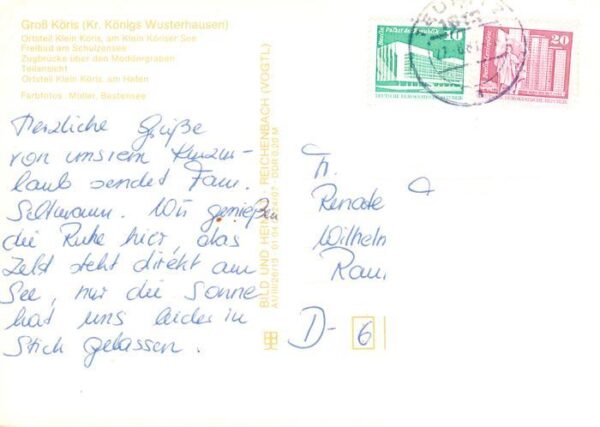 Groß Köris (Kr. Königs Wusterhausen)
Ortsteil Klein Köris, am Klein Köriser See
Freibad am Schulzensee
Zugbrücke über den Moddergraben
Teilansicht
Ortsteil Klein Köris, am Hafen
Farbfotos: Müller, Bestensee
Herzliche Grüße
von unsrem Kurzur-
laub sendet Fam.
Seltmann. Wir genießen
die Ruhe hier, das
Zelt steht direkt am
See, nur die Sonne
hat uns leider in
Stich gelassen.
BILD UND HEIMAT REICHENBACH (VOGTL)
A1/III/26/13 01 04 24/07 DDR 0,20 M
Berlin, Palast der Republik
10
DEUTSCHE DEMOKRATISCHE REPUBLIK
Berlin
20
DEUTSCHE DEMOKRATISCHE REPUBLIK
Fr.
Renate
Wilhelm
D- 6